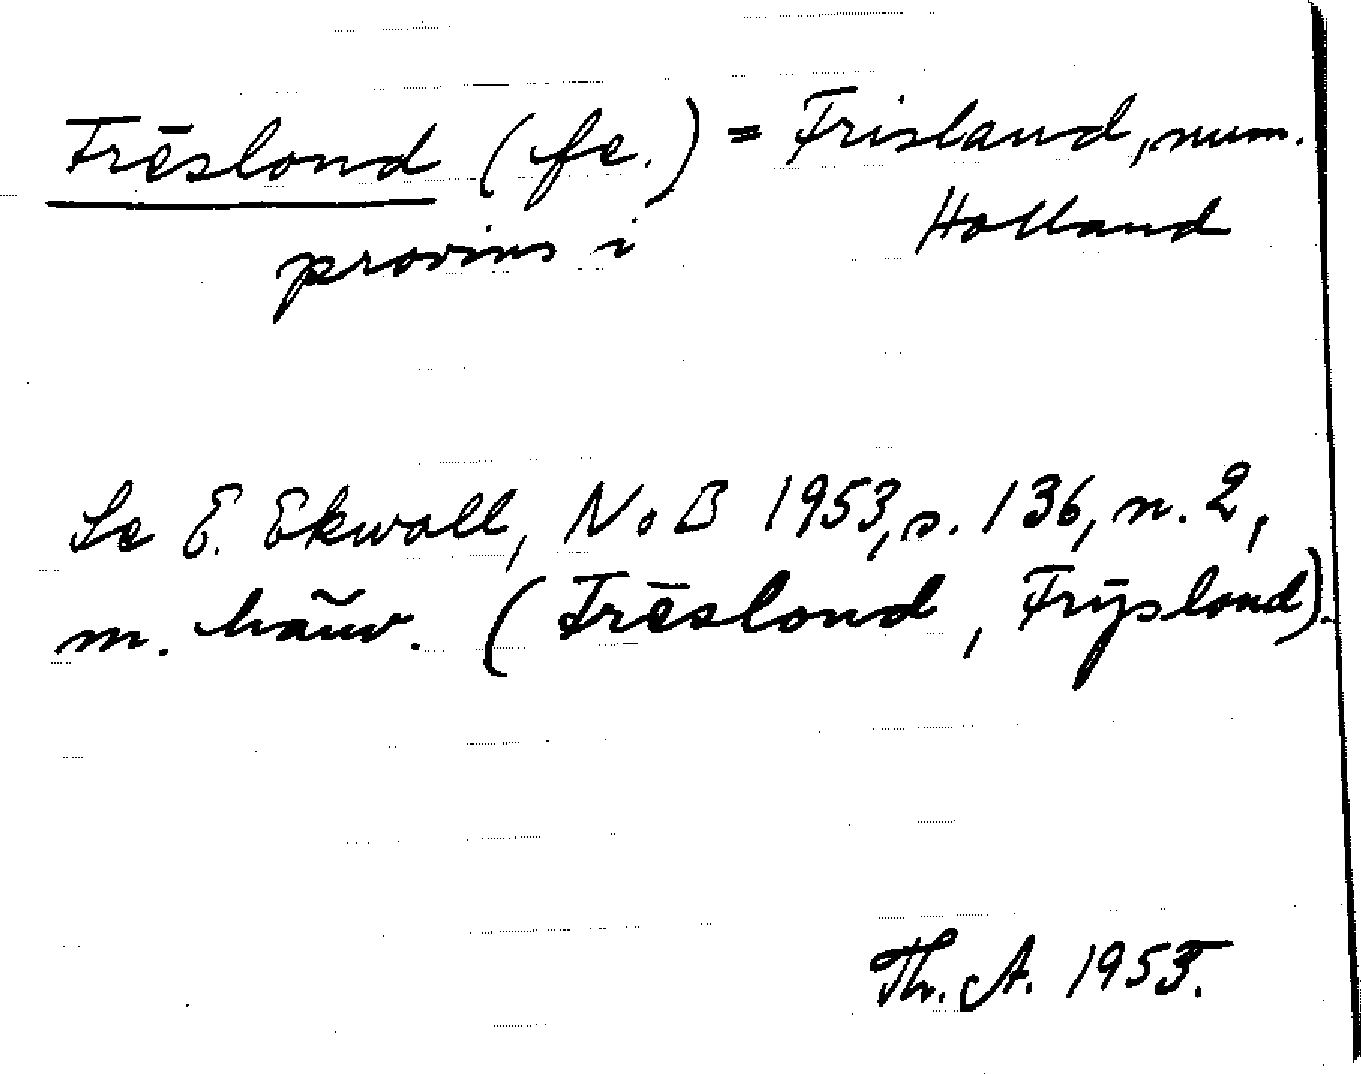 Frēslond (fe.) = Frisland, num.
provins i Holland
Se E. Ekwall, NoB 1953, s. 136, n. 2,
m. hänv. (Frēslond, Frȳslond).
Th. A. 1953.